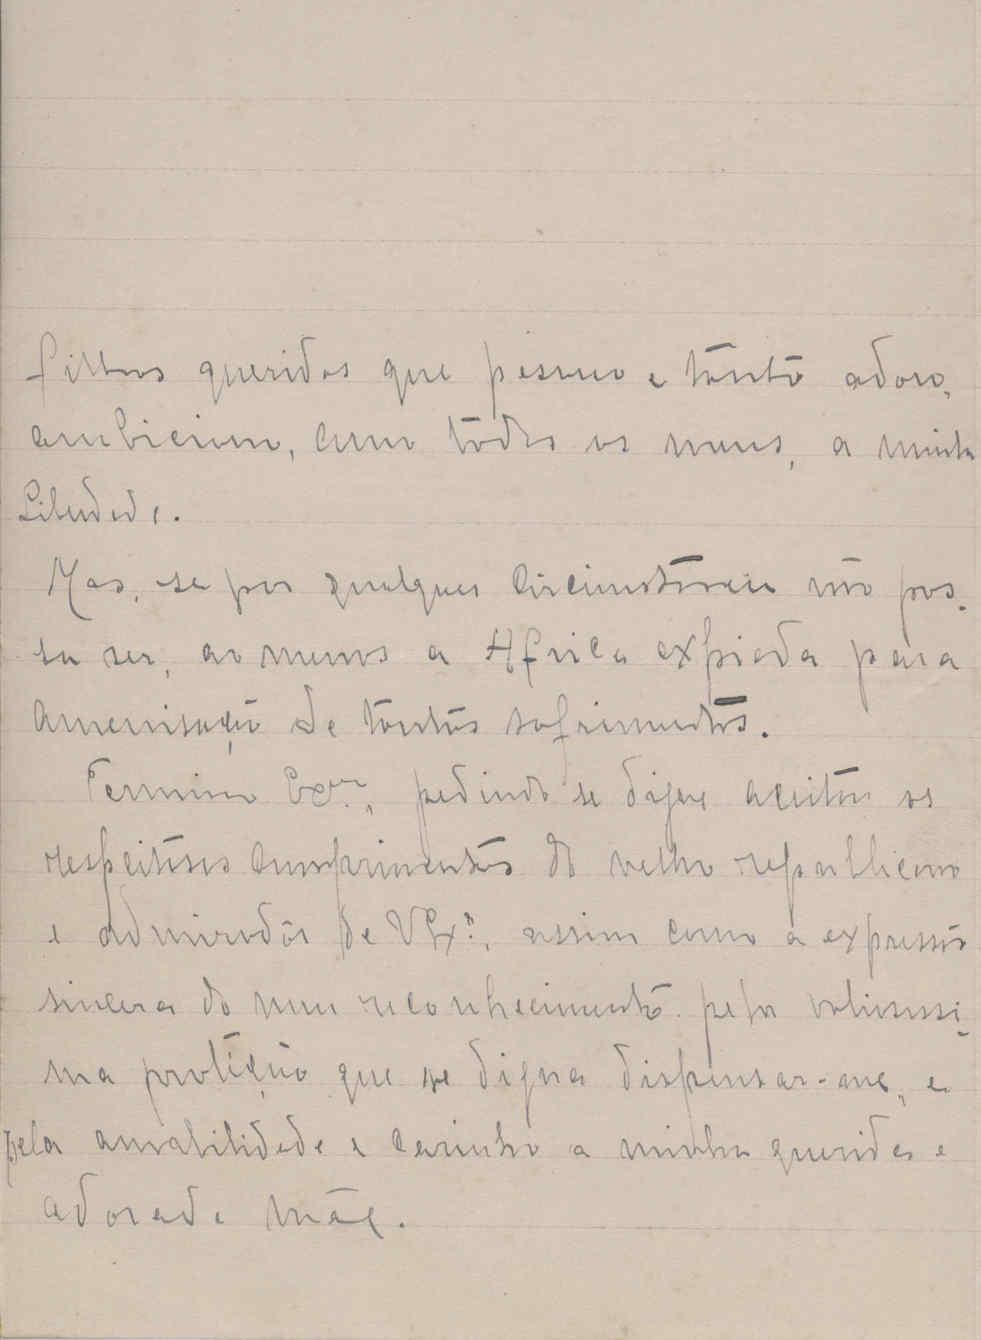 filhos queridos que possuo e tanto adoro,
ambicionam, como todos os meus, a minha
Liberdade.
Mas, se por qualquer circunstancia não pos-
sa ser, ao menos a Africa expiada para
amenisação de tantos sofrimentos.
Termino Exmo, pedindo se digne aceitar os
respeitosos cumprimentos do velho republicano
e admirador de VExa, assim como a expressão
sincera do meu reconhecimento pela valiosissi-
ma proteção que se digna dispensar-me, e
pela amabilidade e carinho a minha querida e
adorada mãe.